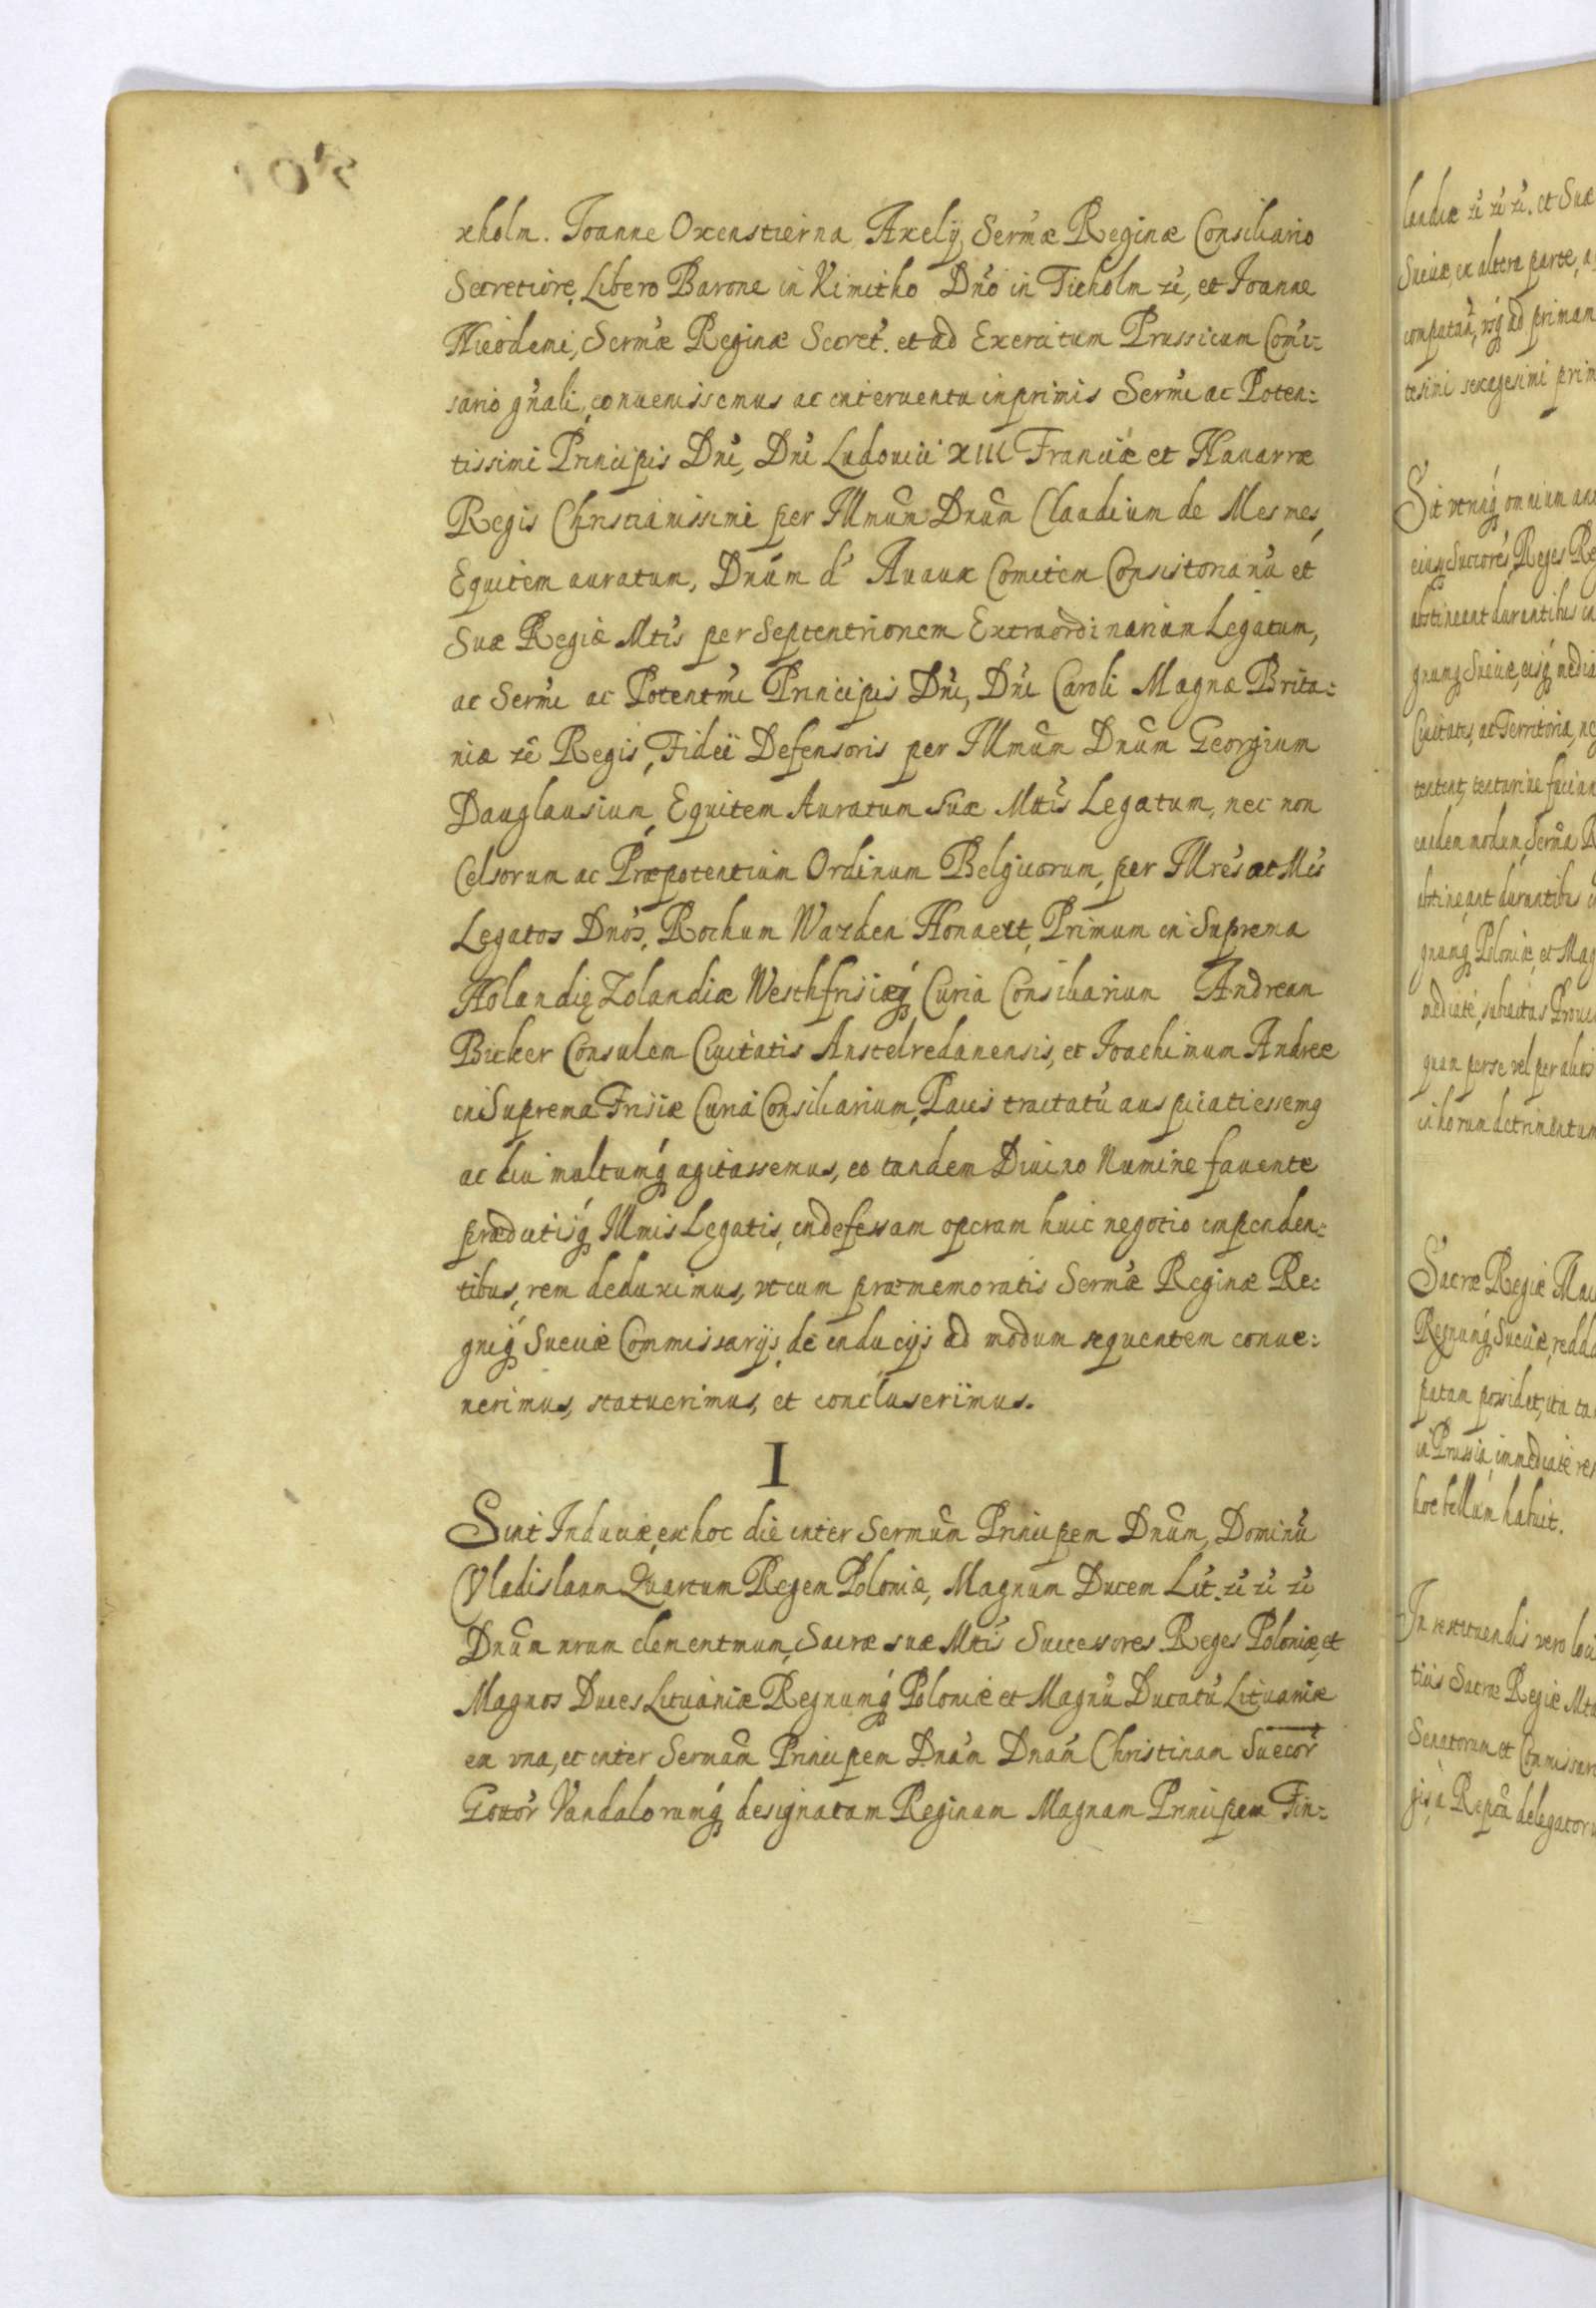 xholm. Joanne Oxenstierna Axelÿ, Serm̃æ Reginæ Consiliario
Secretiore, Libero Barone in Kimitho Dño in Ticholm zc̃, et Joanne
Nicodemi, Serm̃æ Reginæ Secret̃. et ad Exercitum Prussicum Com̃i:
sario gñali, conuenissemus ac interuentu inprimis Serm̃i ac Poten:
tissimi Principis Dñi, Dñi Ludouici XIII Franciæ et Nauarræ
Regis Christianissimi per Illmum Dnum Claudium de Mesmes,
Equitem auratum, Dnum d' Auaux Comitem Consistorianũ et
Suæ Regiæ Mtĩs per Septentrionem Extraordinarium Legatum,
ac Serm̃i ac Potentm̃i Principis Dñi, Dñi Caroli Magnæ Brita:
niæ zc̃ Regis, Fidei Defensoris per Illmum Dnum Georgium
Dauglausium, Equitem Auratum suæ Mttĩs Legatum, nec non
Celsorum ac Præpotentium Ordinum Belgicorum, per Illres et Mĩs
Legatos Dnõs, Rochum Warden Honaert, Primum in Suprema
Holandię Zolandiæ Westhfrisiæq́ Curia Consiliarium Andream
Bicker Consulem Ciuitatis Anstelredanensis, et Joachimum Andree
in Suprema Frisiæ Curia Consiliarium, Pacis tractatũ auspicati essemq
ac diu multumq́ agitassemus, eo tandem Diuino Numine fauente
prædictisq́ Illmis Legatis, indefessam operam huic negotio impenden:
tibus, rem deduximus, vt cum præmemoratis Serm̃æ Reginæ Re:
gniq́ Sueciæ Commissarÿs, de inducÿs ad modum sequentem conue:
nerimus, statuerimus, et concluserimus.
I
Sint Induciæ, ex hoc die inter Sermum Principem Dnum, Dominũ
Vladislaum Quartum Regem Poloniæ, Magnum Ducem Lit̃. zc̃ zc̃ zc̃
Dnum nrum clementmum, Sacræ suæ Mttĩs Successores Reges Poloniæ, et
Magnos Duces Lituaniæ Regnumq́ Poloniæ et Magnũ Ducatũ Lituaniæ
ex vna, et inter Sermam Principem Dnãm Dnãm Christinam Suecor̃
Gotor̃ Vandalorumq́ designatam Reginam Magnam Principem Fin:
landiæ zc̃ zc̃ zc̃. et Suæ
Sueciæ, ex altera parte, a
vsq́ ad primam
tesimi sexagesimi prim
Sit vtrinq́ omnium
Reges Re
abstineant durantibus in
Ciuitates, ac Territoria, ne
eundem modum, Serma R
abstineant durantibus
gnumq́ Poloniæ, et Mag
quam per se vel per alios
in horum detrimentum
Sacræ Regiæ Mai
Regnumq́ Sueciæ, redda
in Prussia, immediate
hoc bellum habuit.
In restituendis vero loci
tius Sacræ Regiæ Mtt
Senatorum et Commissari
delegatoru